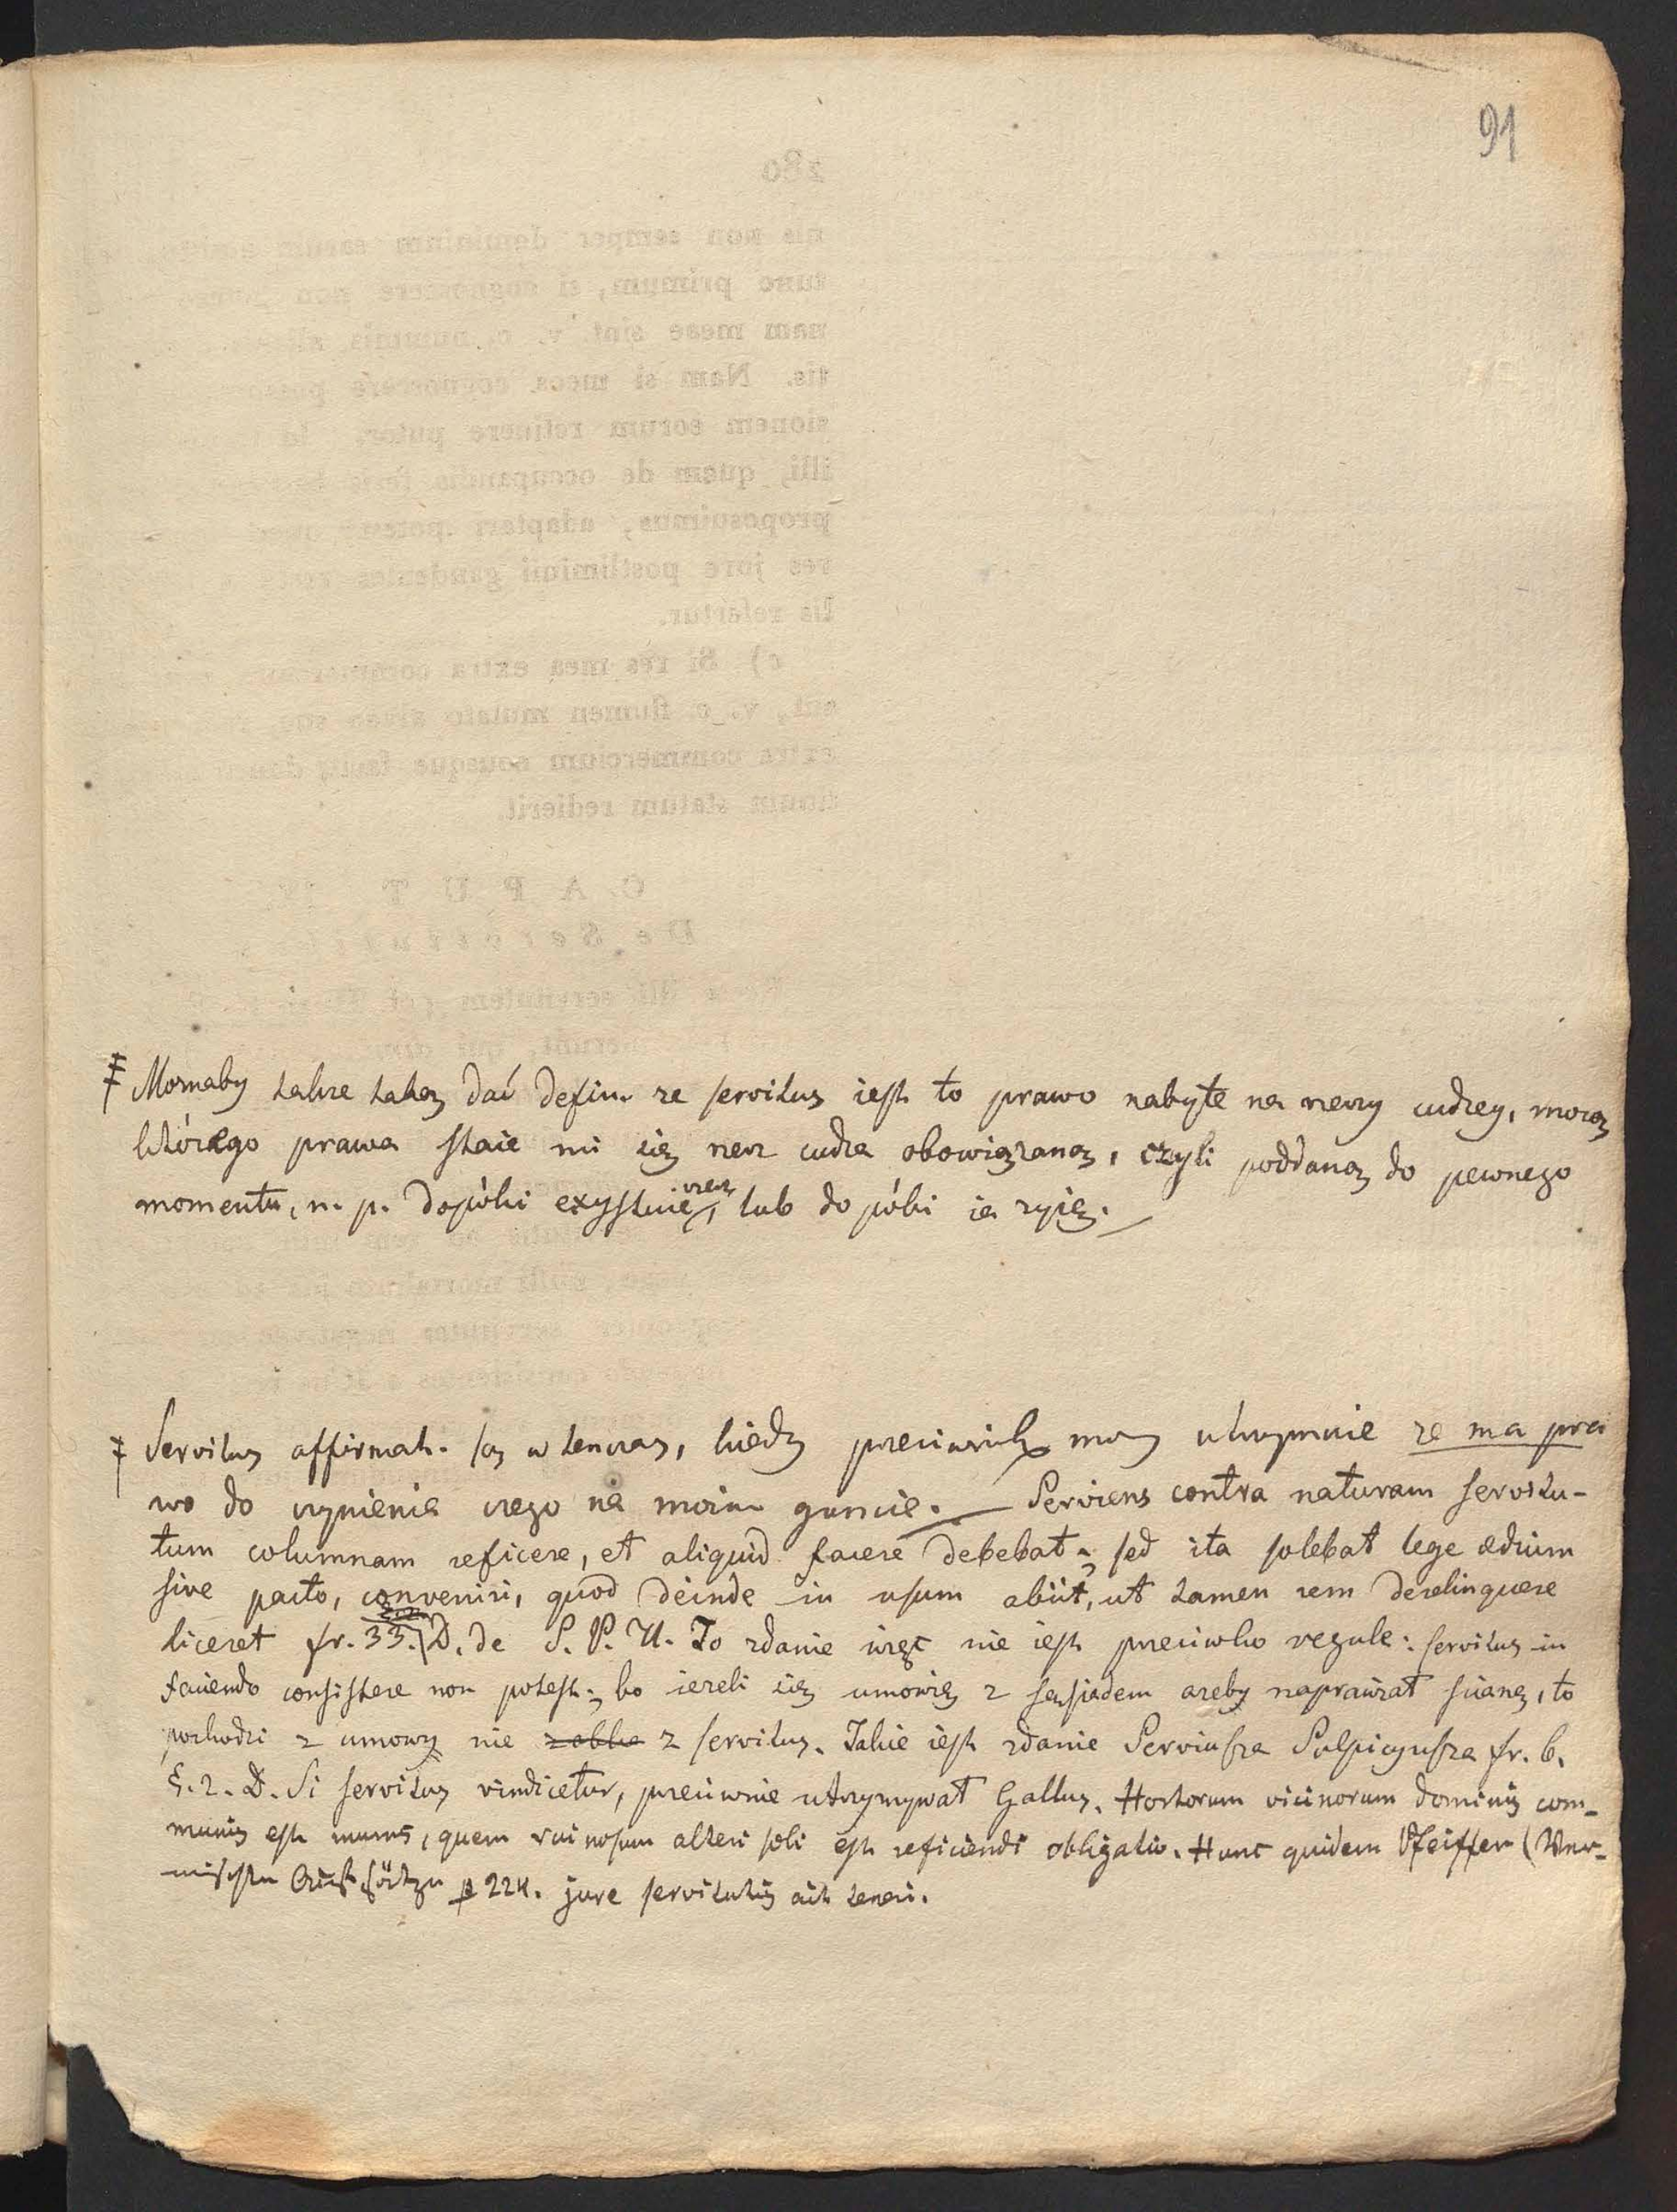 91
‡ Moznaby takze taką dać defin. ze servitus iest to prawo nabyte na rzeczy cudzey, mocą
którego prawa staie mi się rzecz cudza obowiązaną, czyli poddaną do pewnego
momentu, n. p. dopóki exystuie rzecz, lub do póki ia zyię.
‡ Servitus affirmat. są w tenczas, kiedy przeciwnik moy utrzymuie ze ma pra
wo do czynienia czego na moim gruncie. — Serviens contra naturam servitu-
tum columnam reficere, et aliquid facere debebat; sed ita solebat lege ædium
sive pacto, conveniri, quod deinde in usum abiit, ut tamen rem derelinquere
liceret fr. 33. D. de S. P. U. To zdanie więc nie iest przeciwko regule: servitus in
faciendo consistere non potest; bo iezeli się umowię z sąsiadem azeby naprawiał scianę, to
pochodzi z umowy nie z servitus. Takie iest zdanie Serviusza Sulpicyusza fr. 6.
§. 2. D. Si servitus vindicetur, przeciwnie utrzymywał Gallus. Hortorum vicinorum dominis com-
munis est murus, quem ruinosum alteri soli est reficiendi obligatio. Hunc quidem Pfeiffer (Ver-
mischte Aufsätze p 224. jure servitutis ait teneri.